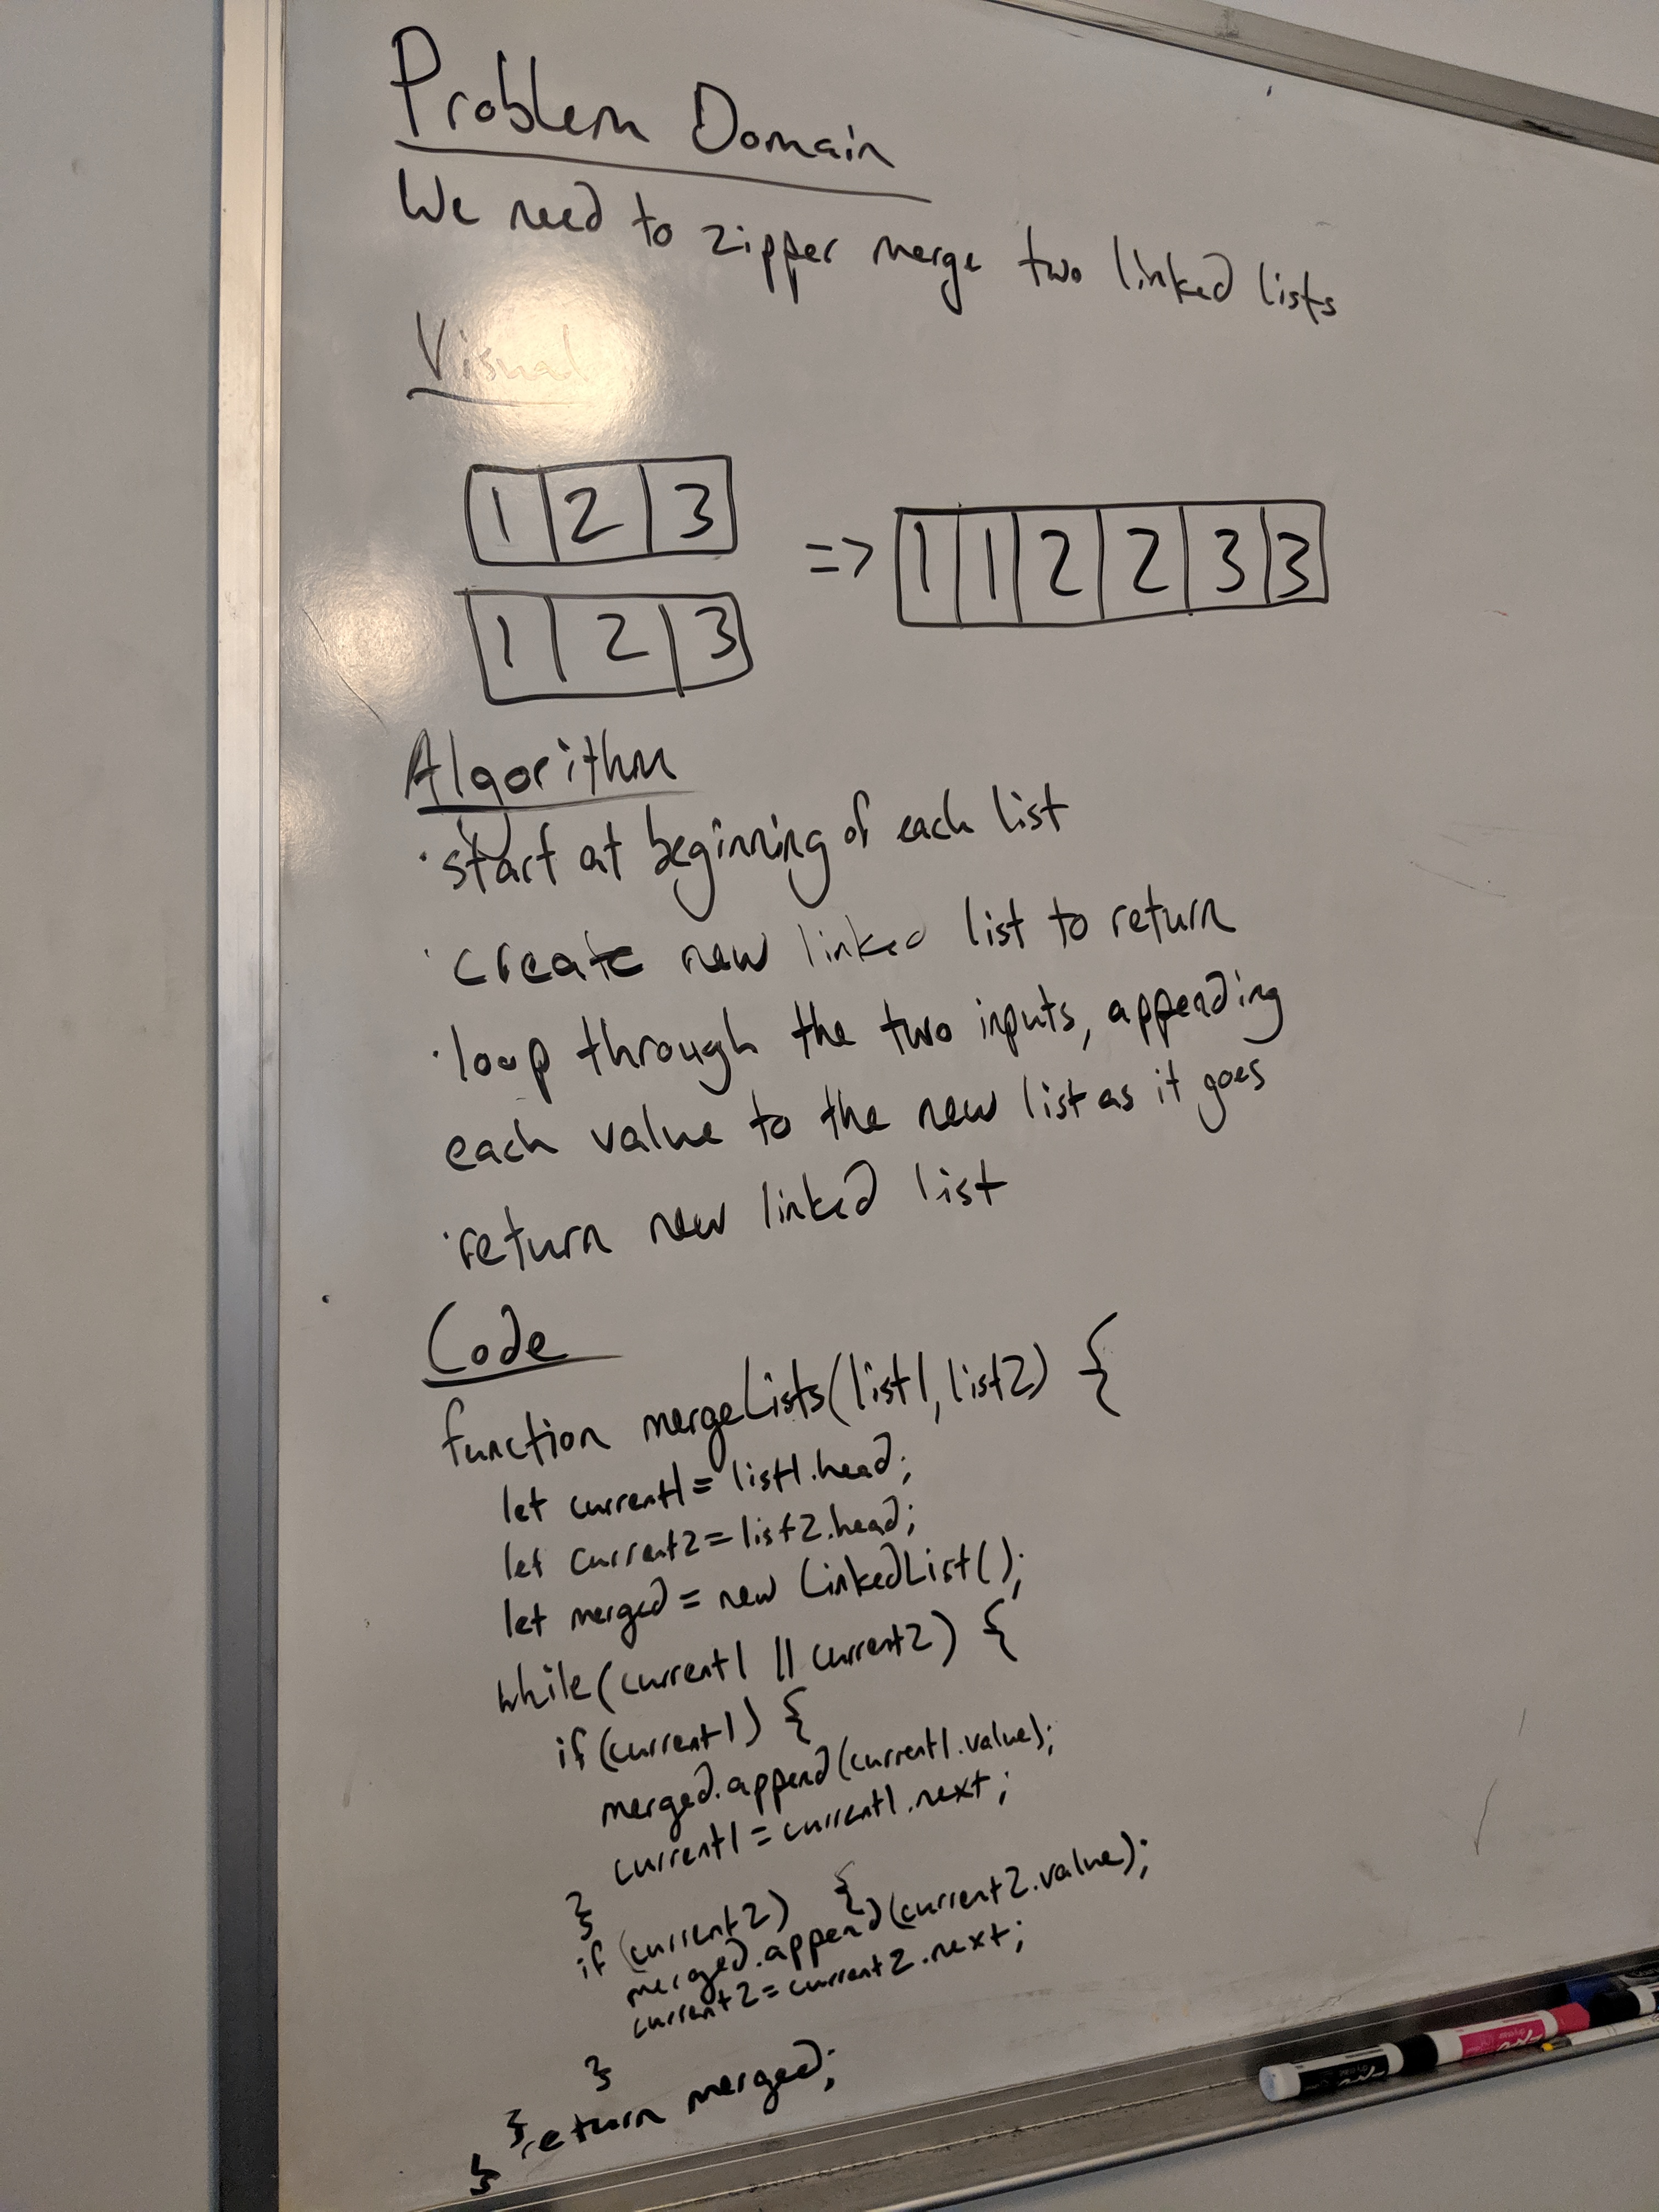 Problem Domain
We need to zipper merge two linked lists
Visual
1 2 3
=> 1 1 2 2 3 3
1 2 3
Algorithm
· start at beginning of each list
· create new linked list to return
· loop through the two inputs, appending
each value to the new list as it goes
· return new linked list
Code
function mergeLists(list1, list2) {
let current1 = list1.head;
let current2 = list2.head;
let merged = new LinkedList();
while (current1 || current2) {
if (current1) {
merged.append(current1.value);
current1 = current1.next;
}
if (current2) {
merged.append(current2.value);
current2 = current2.next;
}
}
return merged;
}